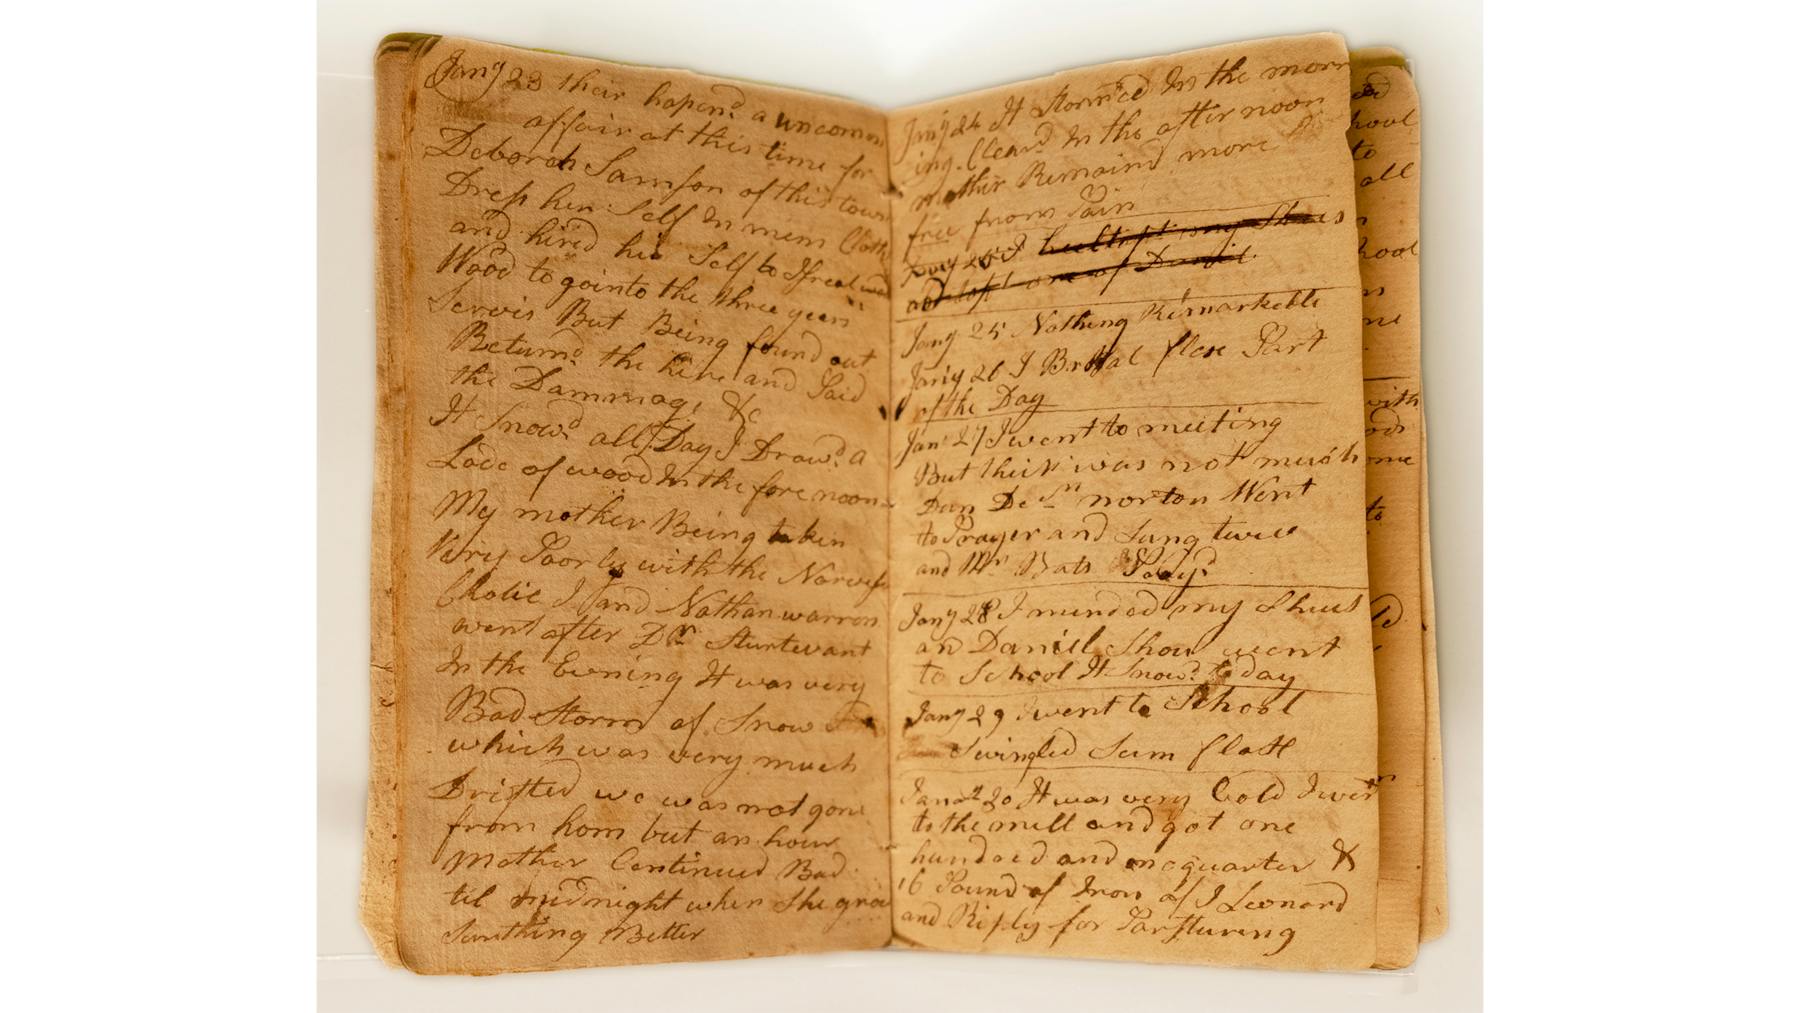 Jany 23 their hapend a uncomon
affair at this time for
Deborah Samson of this town
Dress her Self In mens Cloths
and hired her Self to Isreal
Wood to go into the three years
Servis But Being found out
Returnd the hire and Paid
the Dammage &c
It Snowd all Day I Drawd a
Lode of wood In the fore noon
My mother Being taken
Very Poorly with the
Cholic I and Nathan warren
went after Dr Sturtevant
In the Evening It was very
Bad Storm of Snow
which was very much
Drifted we was not gone
from hom but an hour
Mother Continued Bad
til midnight when She grew
Sumthing Better
Jany 24 It Stormed In the morn
ing. Cleard In the after noon
mother Remaind more
free from Pain
my Shues
one of Daniel
Jany 25 Nothing Remarkeble
Jany 26 I flax Part
of the Day
Jany 27 I went to meeting
But their was not much
Dun De n norton Went
to Prayer and Sung twice
and Mr Bats
Jany 28 I mended my Shues
an Daniell Shaw went
to School It Snowd to day
Jany 29 I went to School
Swingled Sum flax
30 It was very Cold I went
to the mill and got one
hundred and quarter &
16 Pound of Iron of I Leonard
and Riply for Parsturing